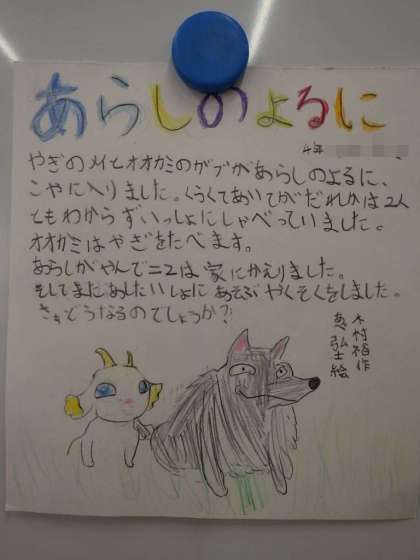 あらしのよるに
4年
やぎのメイとオオカミのガブがあらしのよるに、
こやに入りました。くらくてあいてがだれかは2人
ともわからずいっしょにしゃべっていました。
オオカミはやぎをたべます。
あらしがやんでニ2は家にかえりました。
そしてまたあしたいっしょにあそぶやくそくをしました。
さぁどうなるのでしょうか?!
木村裕一作
あべ弘士絵